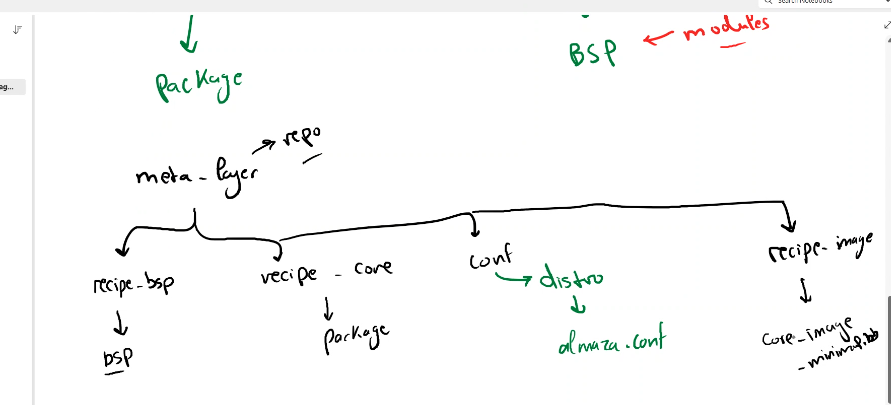 Search Notebooks
ag...
package
BSP
modules
meta_layer
repo
recipe_bsp
bsp
recipe_core
package
conf
distro
almaza.conf
recipe_image
core_image
_minimal.bb